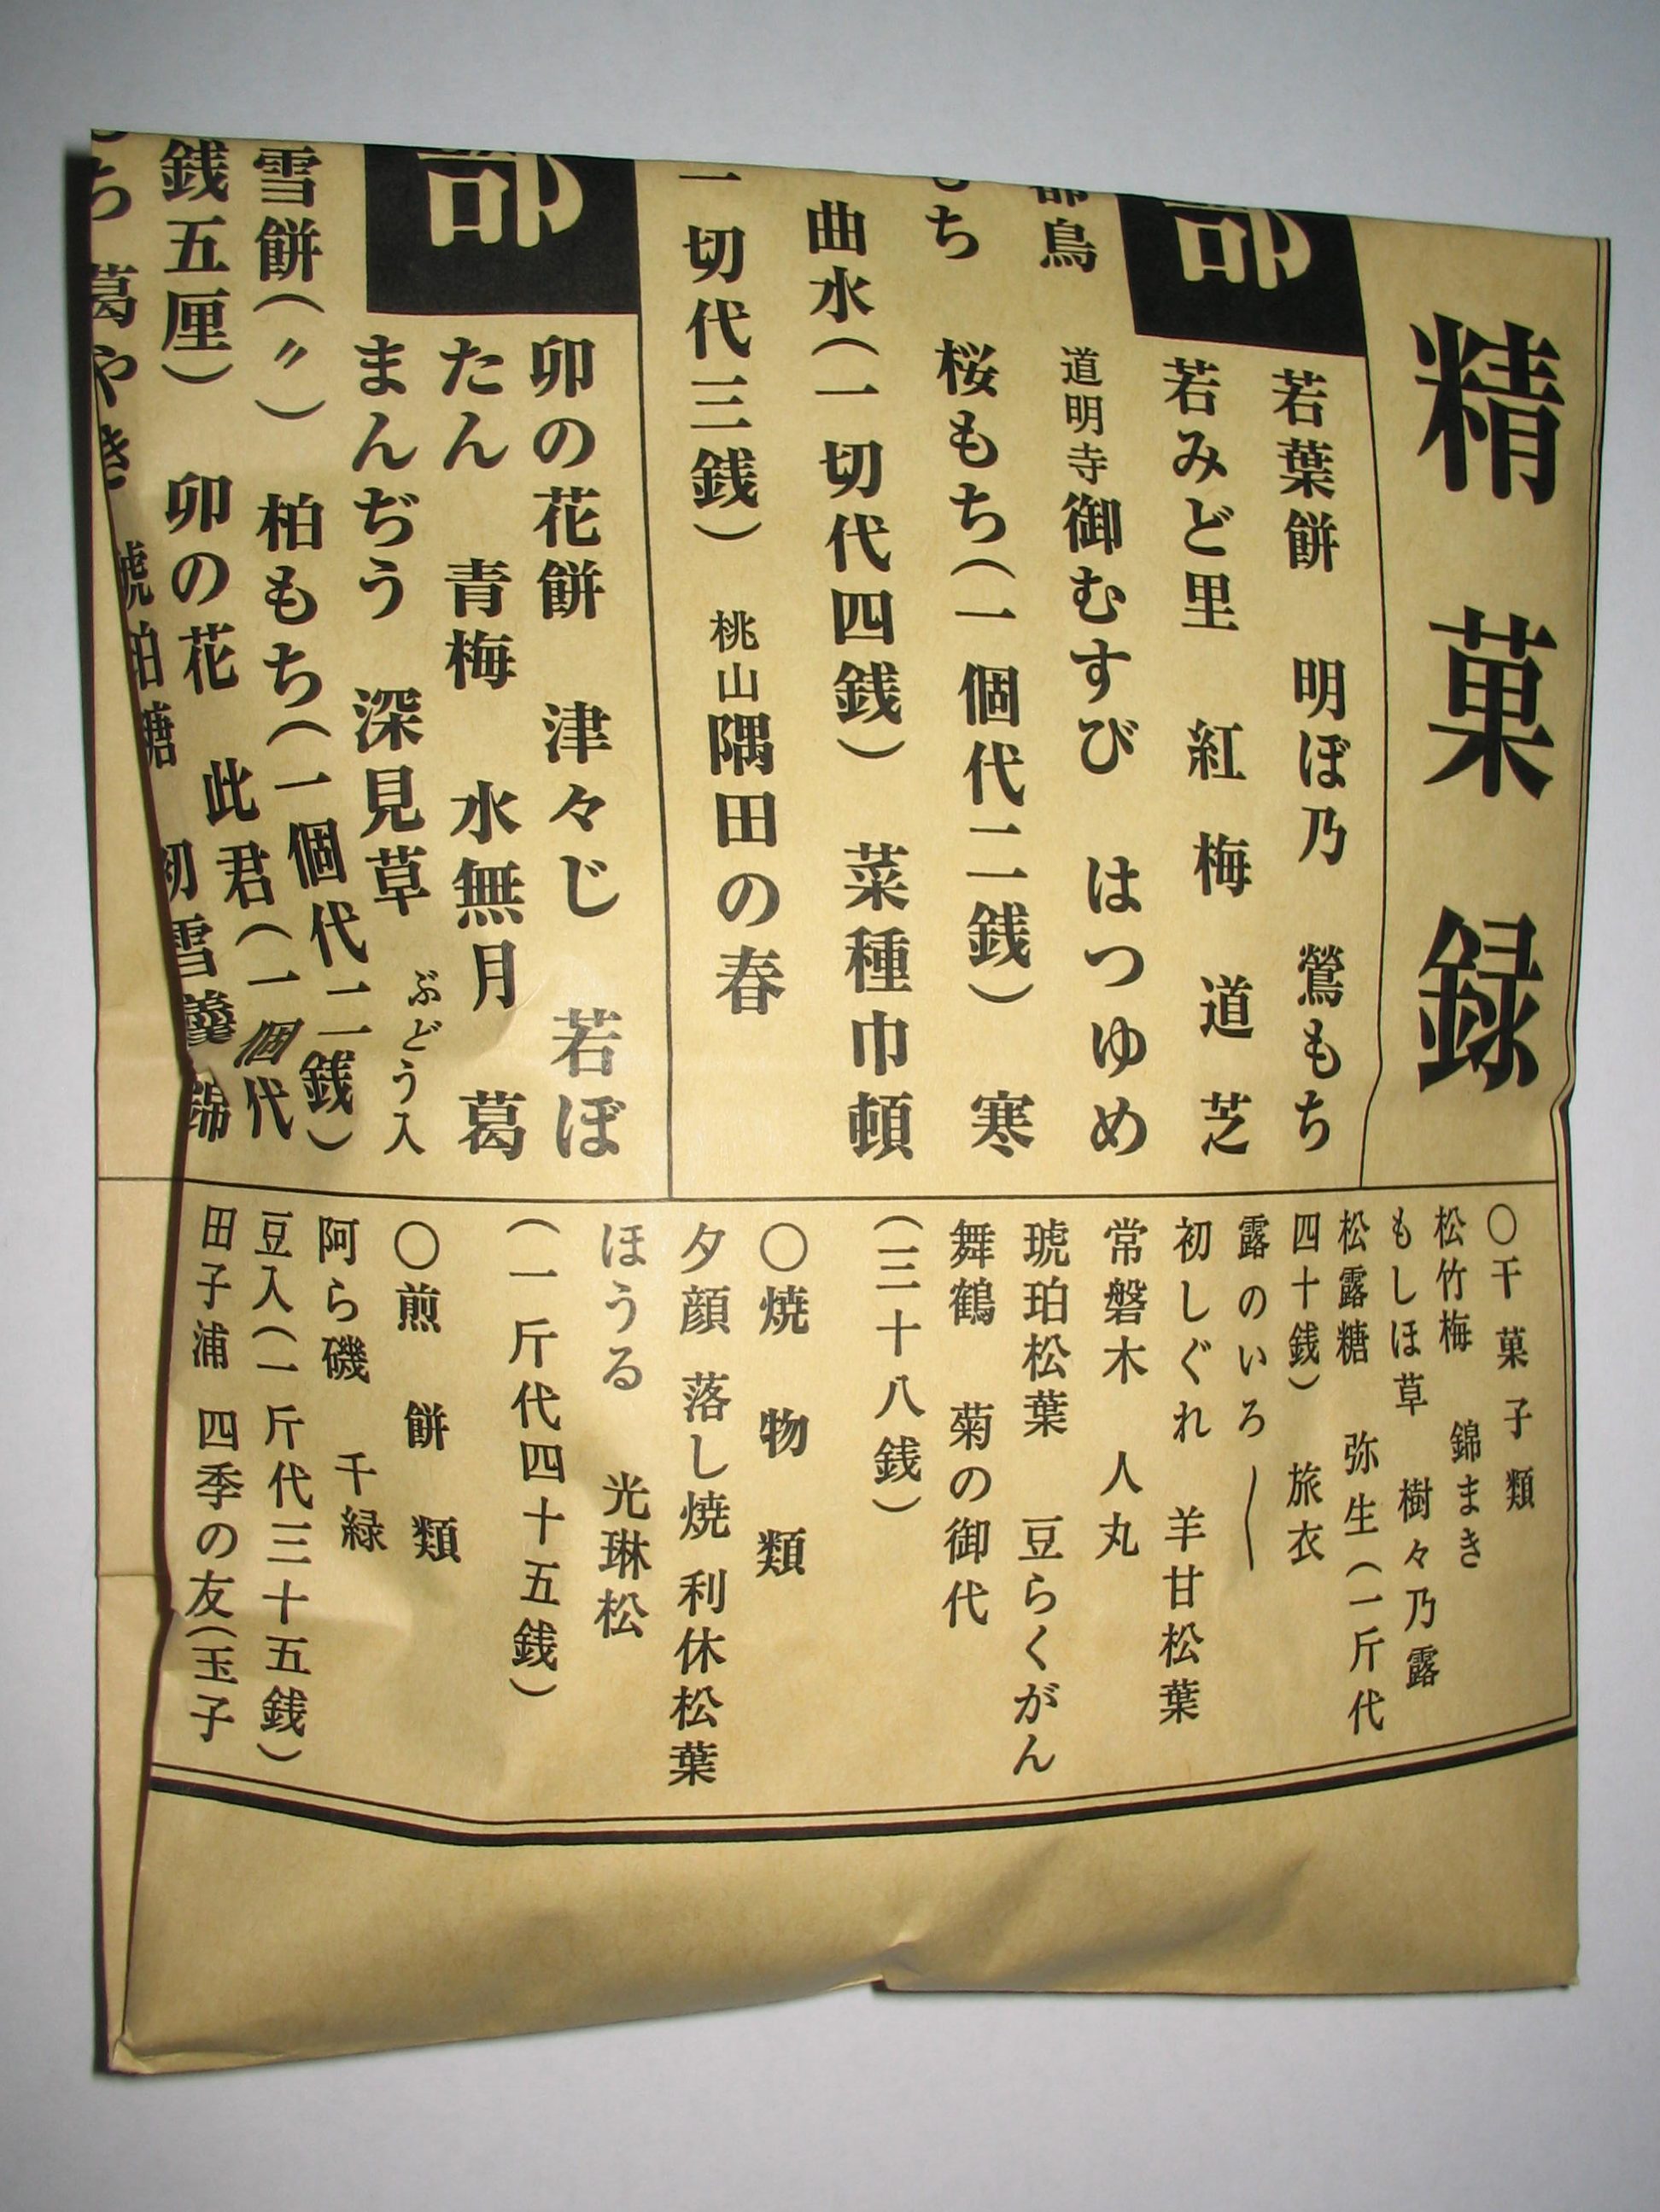 精菓録
部
若葉餅 明ぼ乃 鶯もち
若みど里 紅梅 道芝
都鳥 道明寺御むすび はつゆめ
もち 桜もち(一個代二銭) 寒
曲水(一切代四銭) 菜種巾頓
一切代三銭) 桃山隅田の春
部
卯の花餅 津々じ 若ぼ
たん 青梅 水無月 葛
まんぢう 深見草 ぶどう入
雪餅(〃) 柏もち(一個代二銭)
銭五厘) 卯の花 此君(一個代
ち 葛やき 琥珀糖 初雪羹 錦
○干菓子類
松竹梅 錦まき
もしほ草 樹々乃露
松露糖 弥生(一斤代
四十銭) 旅衣
露のいろ〳〵
初しぐれ 羊甘松葉
常磐木 人丸
琥珀松葉 豆らくがん
舞鶴 菊の御代
(三十八銭)
○焼物類
夕顔 落し焼 利休松葉
ほうる 光琳松
(一斤代四十五銭)
○煎餅類
阿ら磯 千緑
豆入(一斤代三十五銭)
田子浦 四季の友(玉子